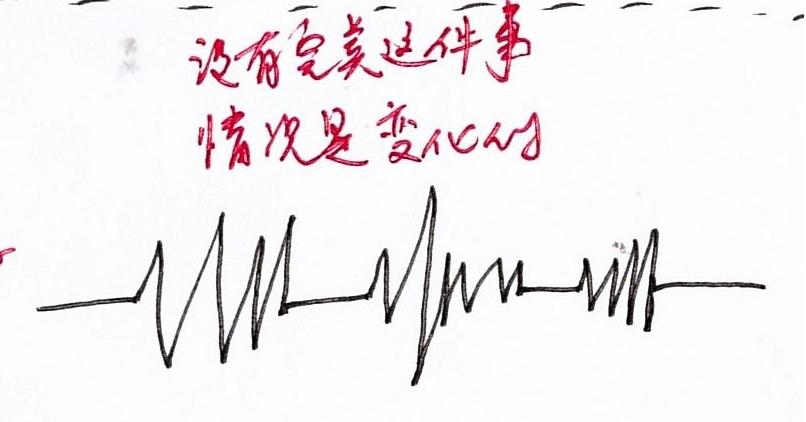 没有完美这件事
情况是变化的